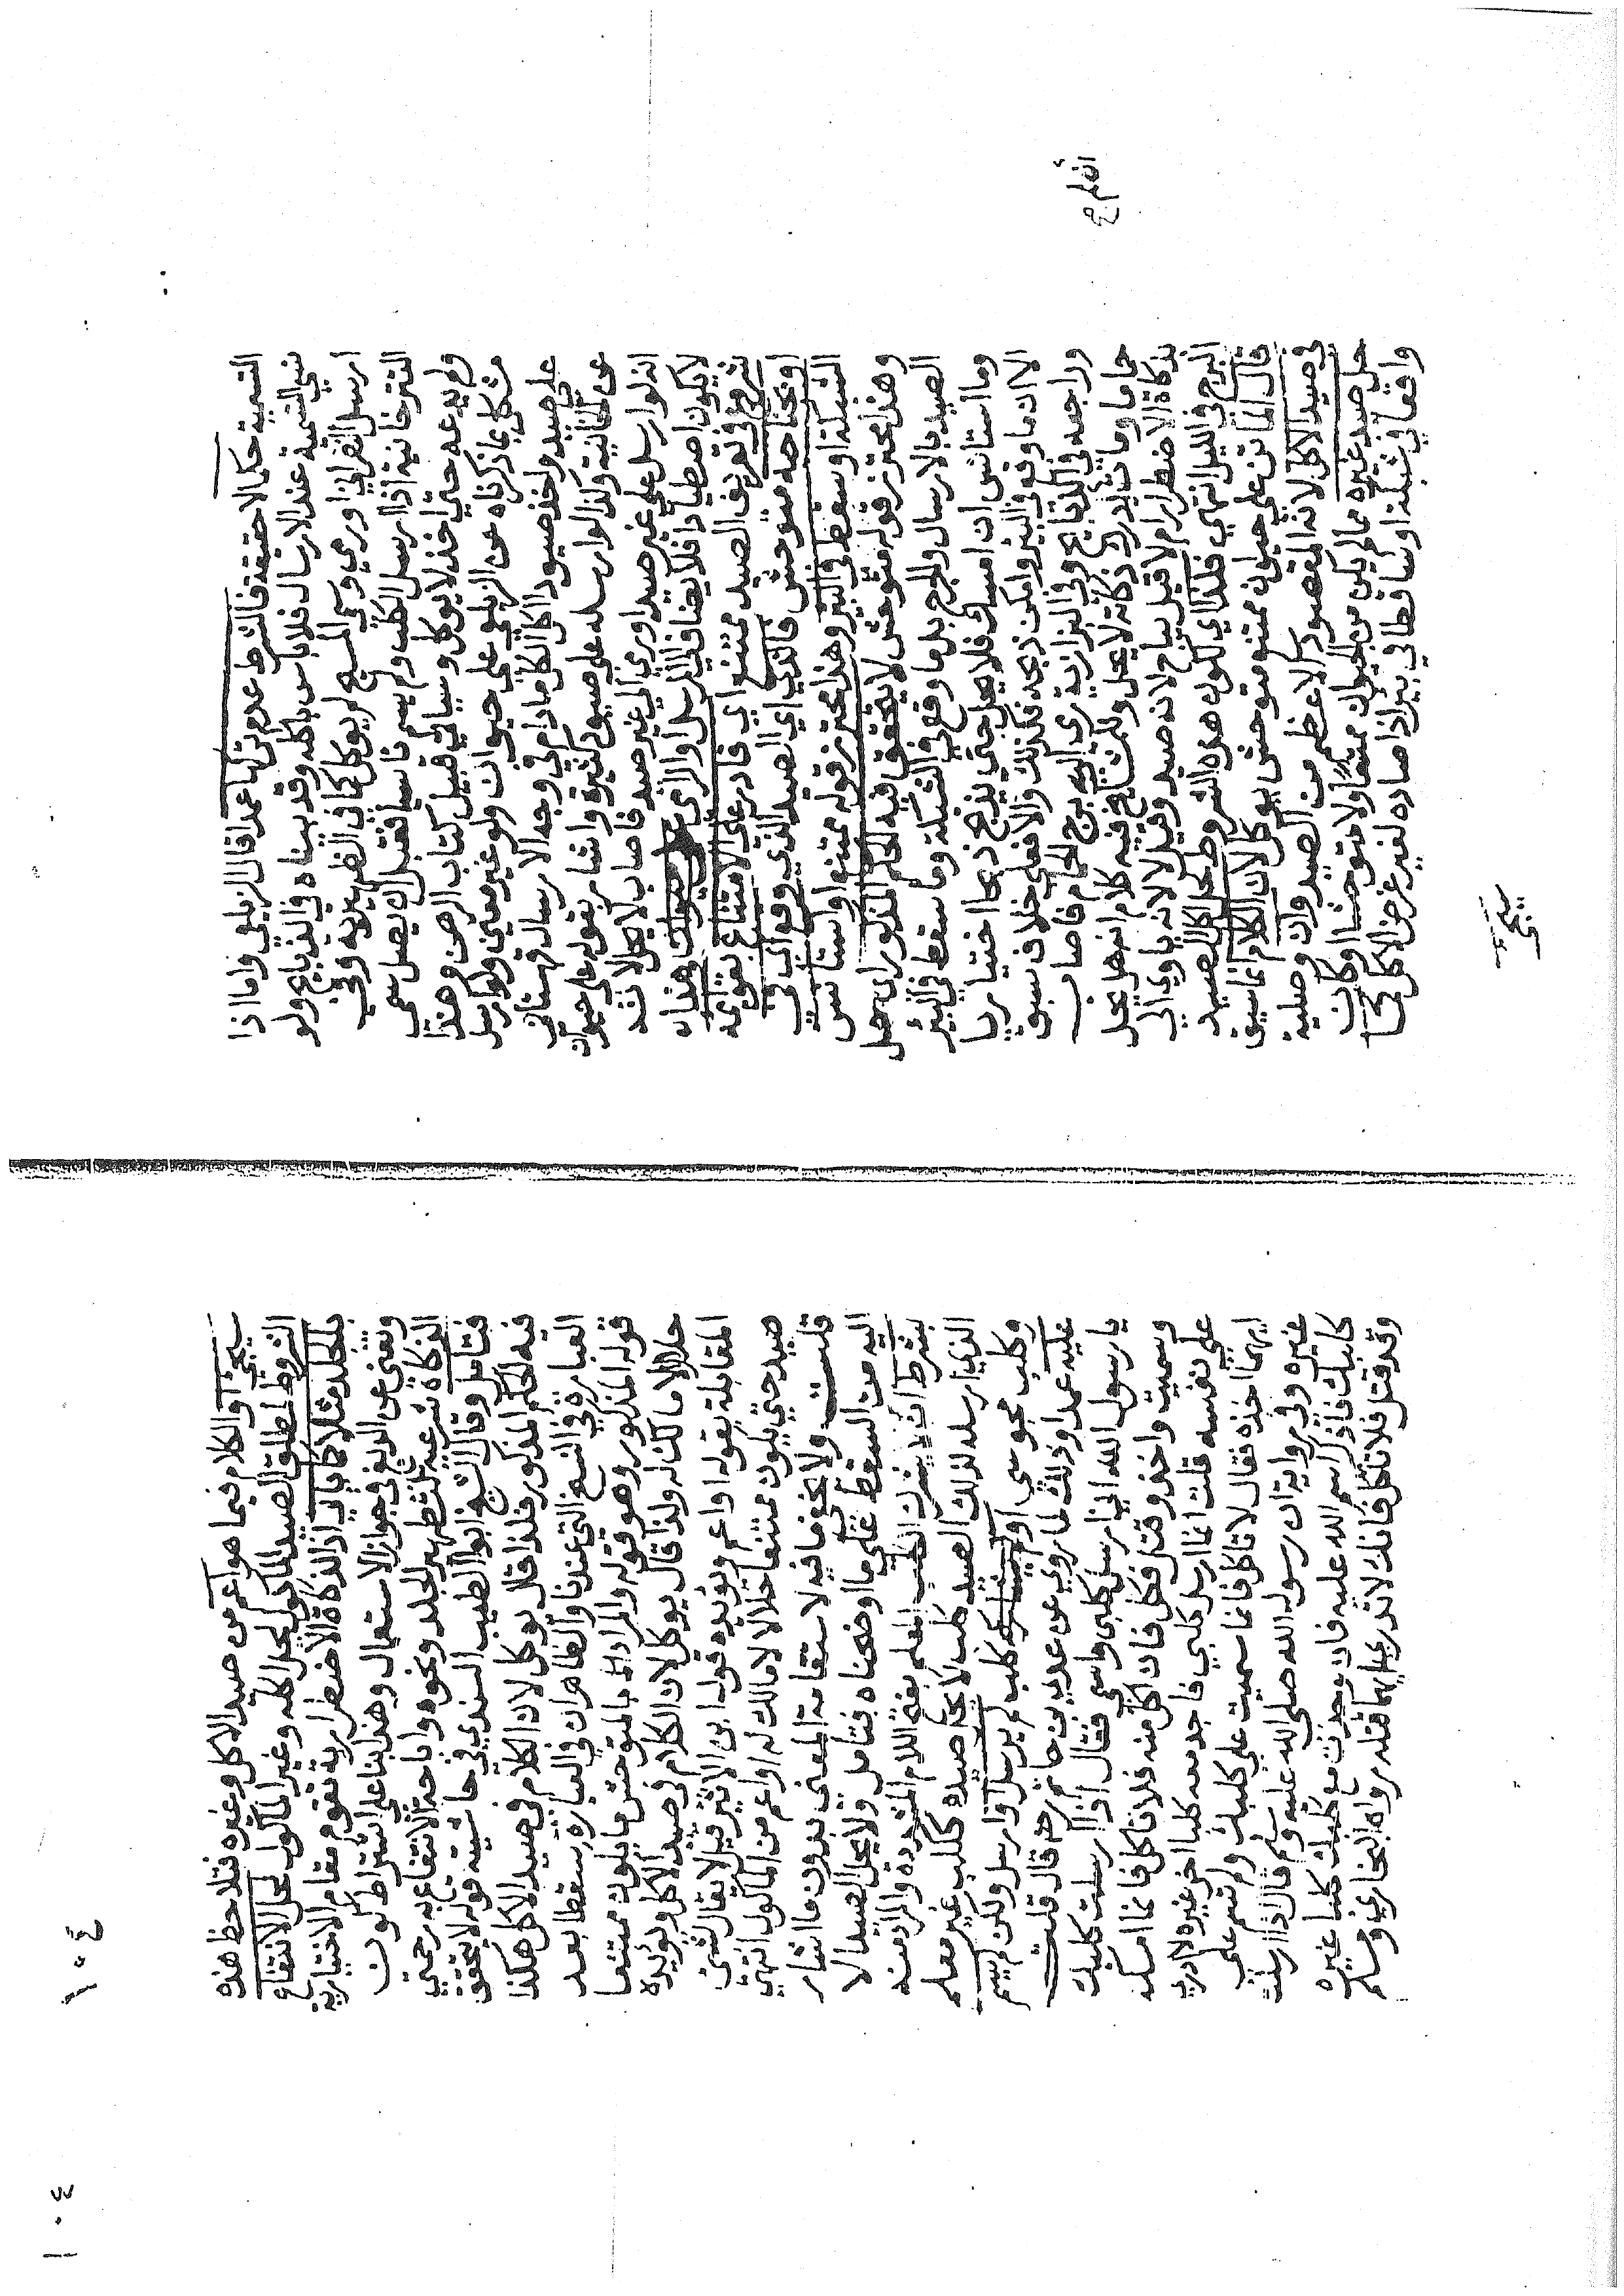 التسمية حكما لا حقيقة فالشرط عدم تركها عمدا قال الزيلعي واما اذا
نسي التسمية عند الارسال فلا باس باكله وقد بيناه في الذبايح ولو
ارسل النصراني او رمى وسمى المسيح لم يوكل كما في الظهيرية وفي
التترخانية اذا ارسل الكلب ولم يسم ناسيا فقبل ان يصل سمى
ولم يدعه حتى اخذ لا يوكل وسياتي قبيل كتاب الرهن وهذا
مشكل بما ذكرناه عن الزيلعي على حيوان ولو غير معين ولو ارسل
على صيد واخذ صيودا اكل الكل مادام في وجه الارسال قهستاني
عن الخانية وكذا لو ارسله على صيود كثيرة واشار بقوله على حيوان
انه لو ارسل على غير صيد او رمى الى غير صيد فاصاب لا يحل لانه
لا يكون اصطيادا فلا يضاف الى المرسل او الرامي هذا ه
شرع في تعريف الصيد ممتنع اي قادر على الامتناع بقوايمه
او بجناحه متوحش فالذي اي الصيد الذي وقع في
الشبكة او سقط في البير وهذا محترز قوله ممتنع او استانس
وهذا محترز قوله متوحش لا يتحقق فيه الحكم المذكور اي حل
الصيد بالارسال والجرح بل ما وقع في الشبكة وما سقط في البير
وما استانس ان امسك فلا يحل حتى يذبح ذبحا اختياريا
الا ان ما وقع في البير وامكن ذبحه فكذلك والا فعلى خلاف سبق
وراجعه في الذبايح وفي البزازية رمى الى برج الحمام فاصاب
حماما ومات قبل ان يدرك ذكاته لا يحل وللمشايخ فيه كلام انه هل يحل
بذكاة الاضطرار ام لا قيل يباح لانه صيد وقيل لا لانه ياوي الى
البرج في الليل انتهى فلذا اي لكون هذه الشروط لحل اكل الصيد
قال الماتن على حيوان ممتنع متوحش يوكل لان الكلام انما سيق
في صيد الاكل لانه المقصود الاعظم من الصيد وان وصلية
حل صيد غيره مما لم يكن من الحيوان ممتنعا ولا متوحشا او كان
واقعا في شبكة او ساقطا في بير اذا صاده لغير غرض الاكل كما
أنه لم ح
سيجي
سيجي والكلام فيما هو اعم من صيد الاكل وغيره فتلاحظ هذه
الشروط لمطلق الصيد الماكول لحل اكله وغير الماكول لحل الانتفاع
بالجلد مثلا كما ياتي اذ الذكاة الاضطرارية تقوم مقام الاختيارية
وتغني عن الدبغ في جواز الاستعمال وهذا بناء على اشتراط كون
الذكاة شرعية لتطهير الجلد ونحوه واباحة الانتفاع به رحمتي
فتامل وقال الشيخ ابو الطيب السندي في حاشيته قوله لا يتحقق
فيه الحكم المذكور فلذا قال يوكل لان الكلام في صيد الاكل هكذا
العبارة في النسخ التي عندنا والظاهر ان في العبارة سقطا بعد
قوله المذكور وهو قوله والمراد بالمتوحش ما يكون ممتنعا
حلالا لا مالك له ولذا قال يوكل لان الكلام في صيد الاكل ويويده
المقابلة بقوله او اعم ويويده قول ابن الاثير قيل لا يقال لشي
صيد حتى يكون ممتنعا حلالا لا مالك له او اعم من الماكول انتهى
قلت ولا يخفى ما فيه لاستقامة المعنى بدون ما اشار
اليه من السقط على ما اوضحناه فتامل ولا يحل الصيد الا
بشرط ان لا يشرك الكلب المعلم بفتح اللام المشددة والمراد منه
الذي ارسله لذلك الصيد كلب لا يحل صيده ككلب غير معلم
وكلب مجوسي او كلب لم يرسل او ارسل ولكن لم يسم
عليه عمدا وذلك لما روي عن عدي بن حاتم رضه قال قلت
يا رسول الله اني ارسل كلبي واسمي فقال اذا ارسلت كلبك
وسميت واخذ وقتل فكل فان اكل منه فلا تاكل فانما امسك
على نفسه قلت انما ارسل كلبي فاجد معه كلبا اخر غيره لا ادري
ايهما اخذه فقال لا تاكل فانما سميت على كلبك ولم تسم على
غيره وفي رواية ان رسول الله صلى الله عليه وسلم قال اذا ارسلت
كلبك فاذكر اسم الله عليه فان وجدت مع كلبك كلبا غيره
وقد قتل فلا تاكل فانك لا تدري ايهما قتله رواه البخاري ومسلم
١٠٤
١٠٤